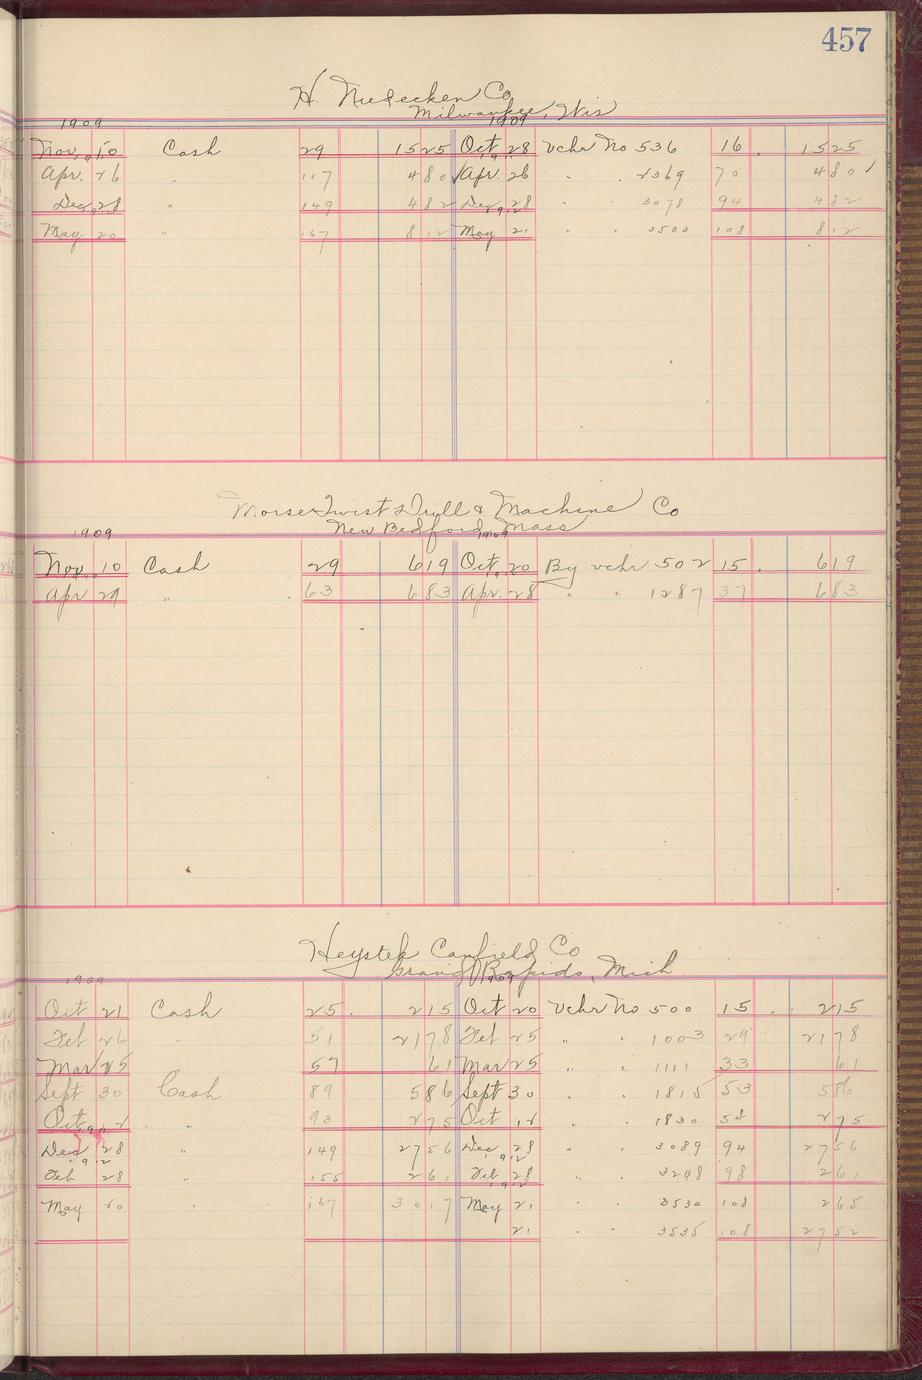 457
H. Niedecken Co
Milwaukee, Wis
1909 1909
Nov. 10 Cash 29 1525 Oct 28 Vchr No 536 16 1525
Apr. 26 " 117 480 ✓ Apr. 26 " " 2369 70 480 ✓
Dec 28 " 149 482 Dec 28 " " 3078 94 482
1912
May 20 " 167 812 May 21 " " 3500 108 812
Morse Twist Drill & Machine Co
New Bedford, Mass
1909 1909
Nov. 10 Cash 29 619 Oct 20 By vchr 502 15 619
Apr 29 " 63 683 Apr. 28 " " 1287 37 683
Heystek Canfield Co
Grand Rapids, Mich
1909 1909
Oct 21 Cash 25 215 Oct 20 Vchr No 500 15 215
Feb 26 " 51 2178 Feb 25 " " 1003 29 2178
Mar 25 57 61 Mar 25 " " 1111 33 61
Sept 30 Cash 89 586 Sept 30 " " 1815 53 586
Oct " 93 275 Oct 12 " " 1830 54 275
Dec 28 " 149 2756 Dec 28 " " 3089 94 2756
1912 1912
Feb 28 " 155 261 Feb 28 " " 3248 98 261
1912
May 20 " 167 3017 May 21 " " 3534 108 265
21 " " 3535 108 2752